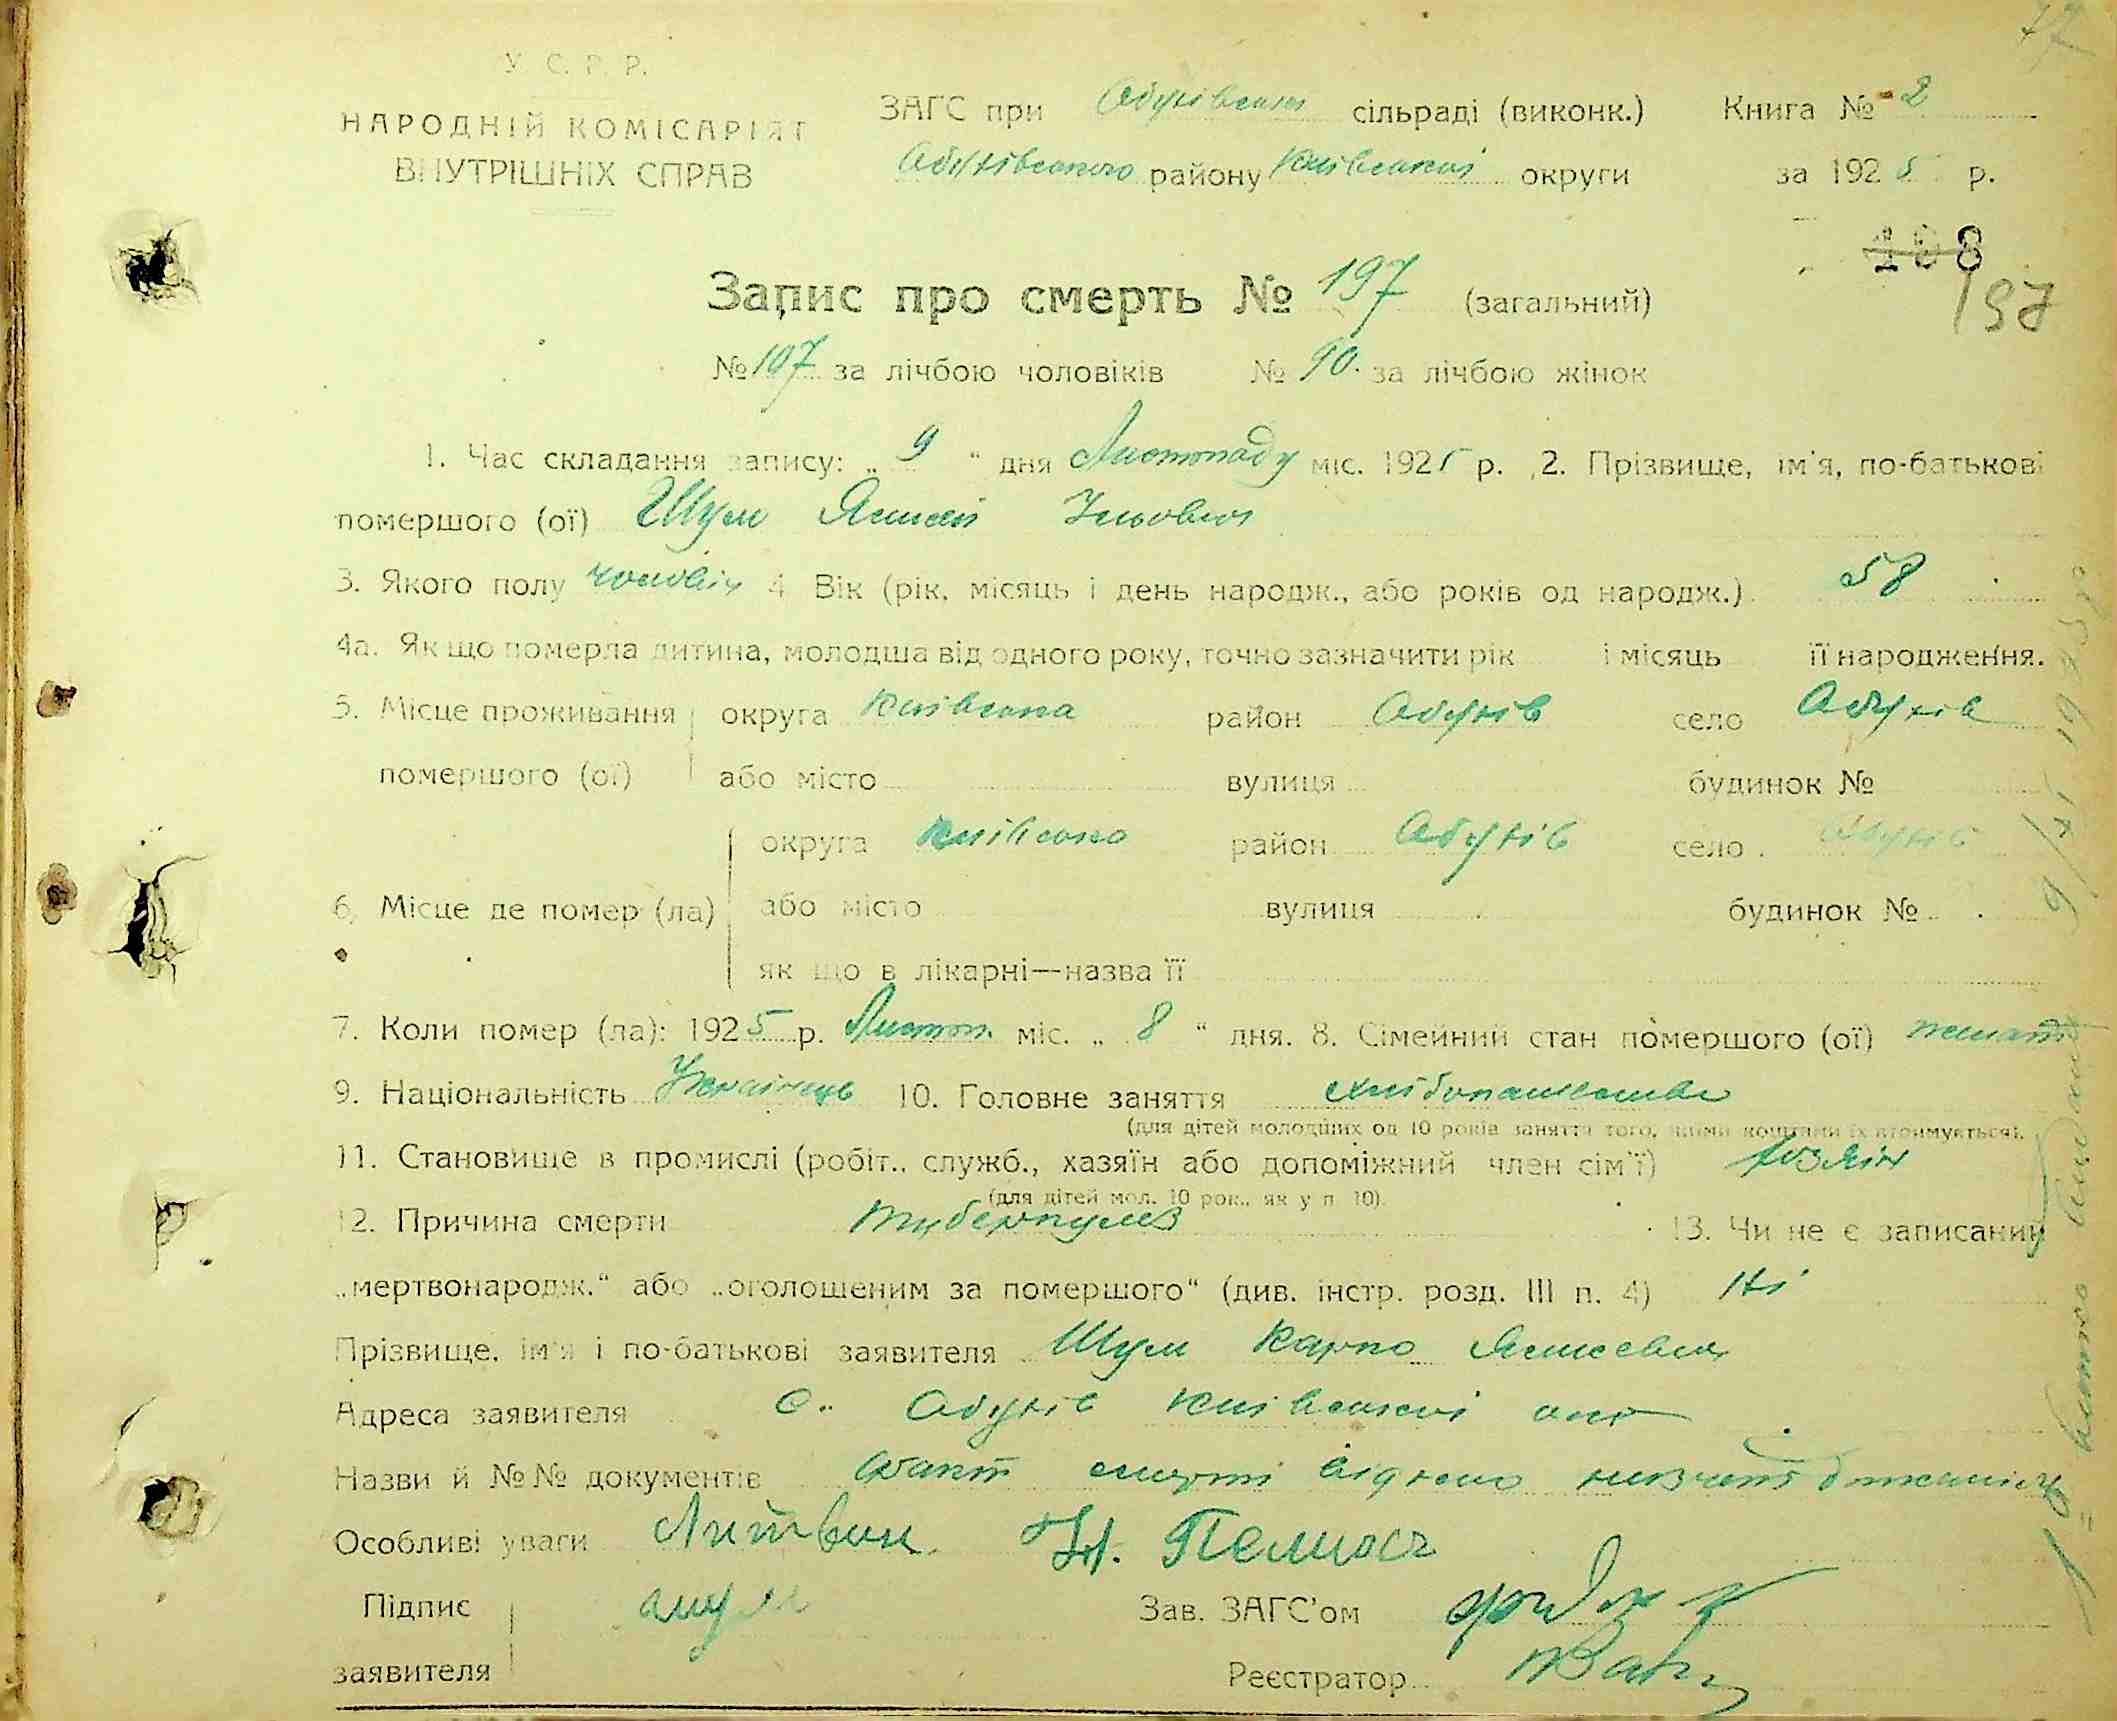 77
У. С. Р. Р.
НАРОДНІЙ КОМІСАРІЯТ
ВНУТРІШНІХ СПРАВ
ЗАГС при Обухівській сільраді (виконк.) Книга № 2
Обухівського району Київської округи за 1925 р.
198
197
Запис про смерть № 197 (загальний)
№ 107 за лічбою чоловіків № 90. за лічбою жінок
1. Час складання запису: „ 9 “ дня Листопаду міс. 1925 р. 2. Прізвище, ім'я, по-батькові
помершого (ої) Шум
3. Якого полу чоловік 4 Вік (рік, місяць і день народж., або років од народж.) 58
4а. Як що померла дитина, молодша від одного року, точно зазначити рік і місяць її народження.
5. Місце проживання округа Київська район Обухів село Обухів
помершого (ої) або місто вулиця будинок №
округа Київська район Обухів село Обухів
6. Місце де помер (ла) або місто вулиця будинок №
як що в лікарні—назва її
7. Коли помер (ла): 1925 р. Листоп. міс. „ 8 “ дня. 8. Сімейний стан помершого (ої) жонат
9. Національність Українець 10. Головне заняття хліборобство
(для дітей молодших од 10 років заняття того, чиїми коштами їх втримується).
11. Становище в промислі (робіт., служб., хазяїн або допоміжний член сім'ї) хозяїн
(для дітей мол. 10 рок., як у п. 10).
12. Причина смерти туберкульоз 13. Чи не є записаний
„мертвонародж.“ або „оголошеним за помершого“ (див. інстр. розд. III п. 4) Ні
Прізвище, ім'я і по-батькові заявителя Шум Карпо
Адреса заявителя с. Обухів Київської окр
Назви й №№ документів факт смерті
Особливі уваги Литвин
Підпис Шум Зав. ЗАГС'ом
заявителя Реєстратор
9/XI 1925 р